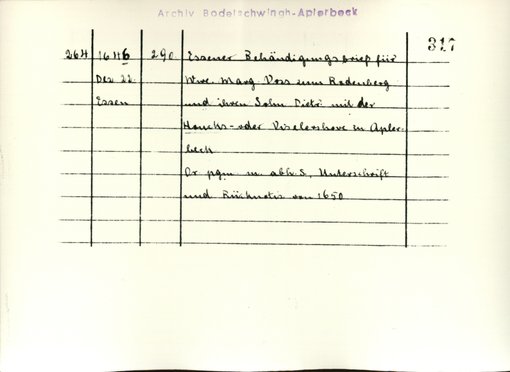 Archiv Bodelschwingh-Aplerbeck
317
264 1646 290 Essener Behändigungsbrief für
Dez. 22. Wwe. Marg. Voss zum Rodenberg
Essen und ihren Sohn Dietr. mit der
Houcks- oder Viselershove in Apler-
beck
Or. pgm. m. abh. S., Unterschrift
und Rücknotiz von 1650